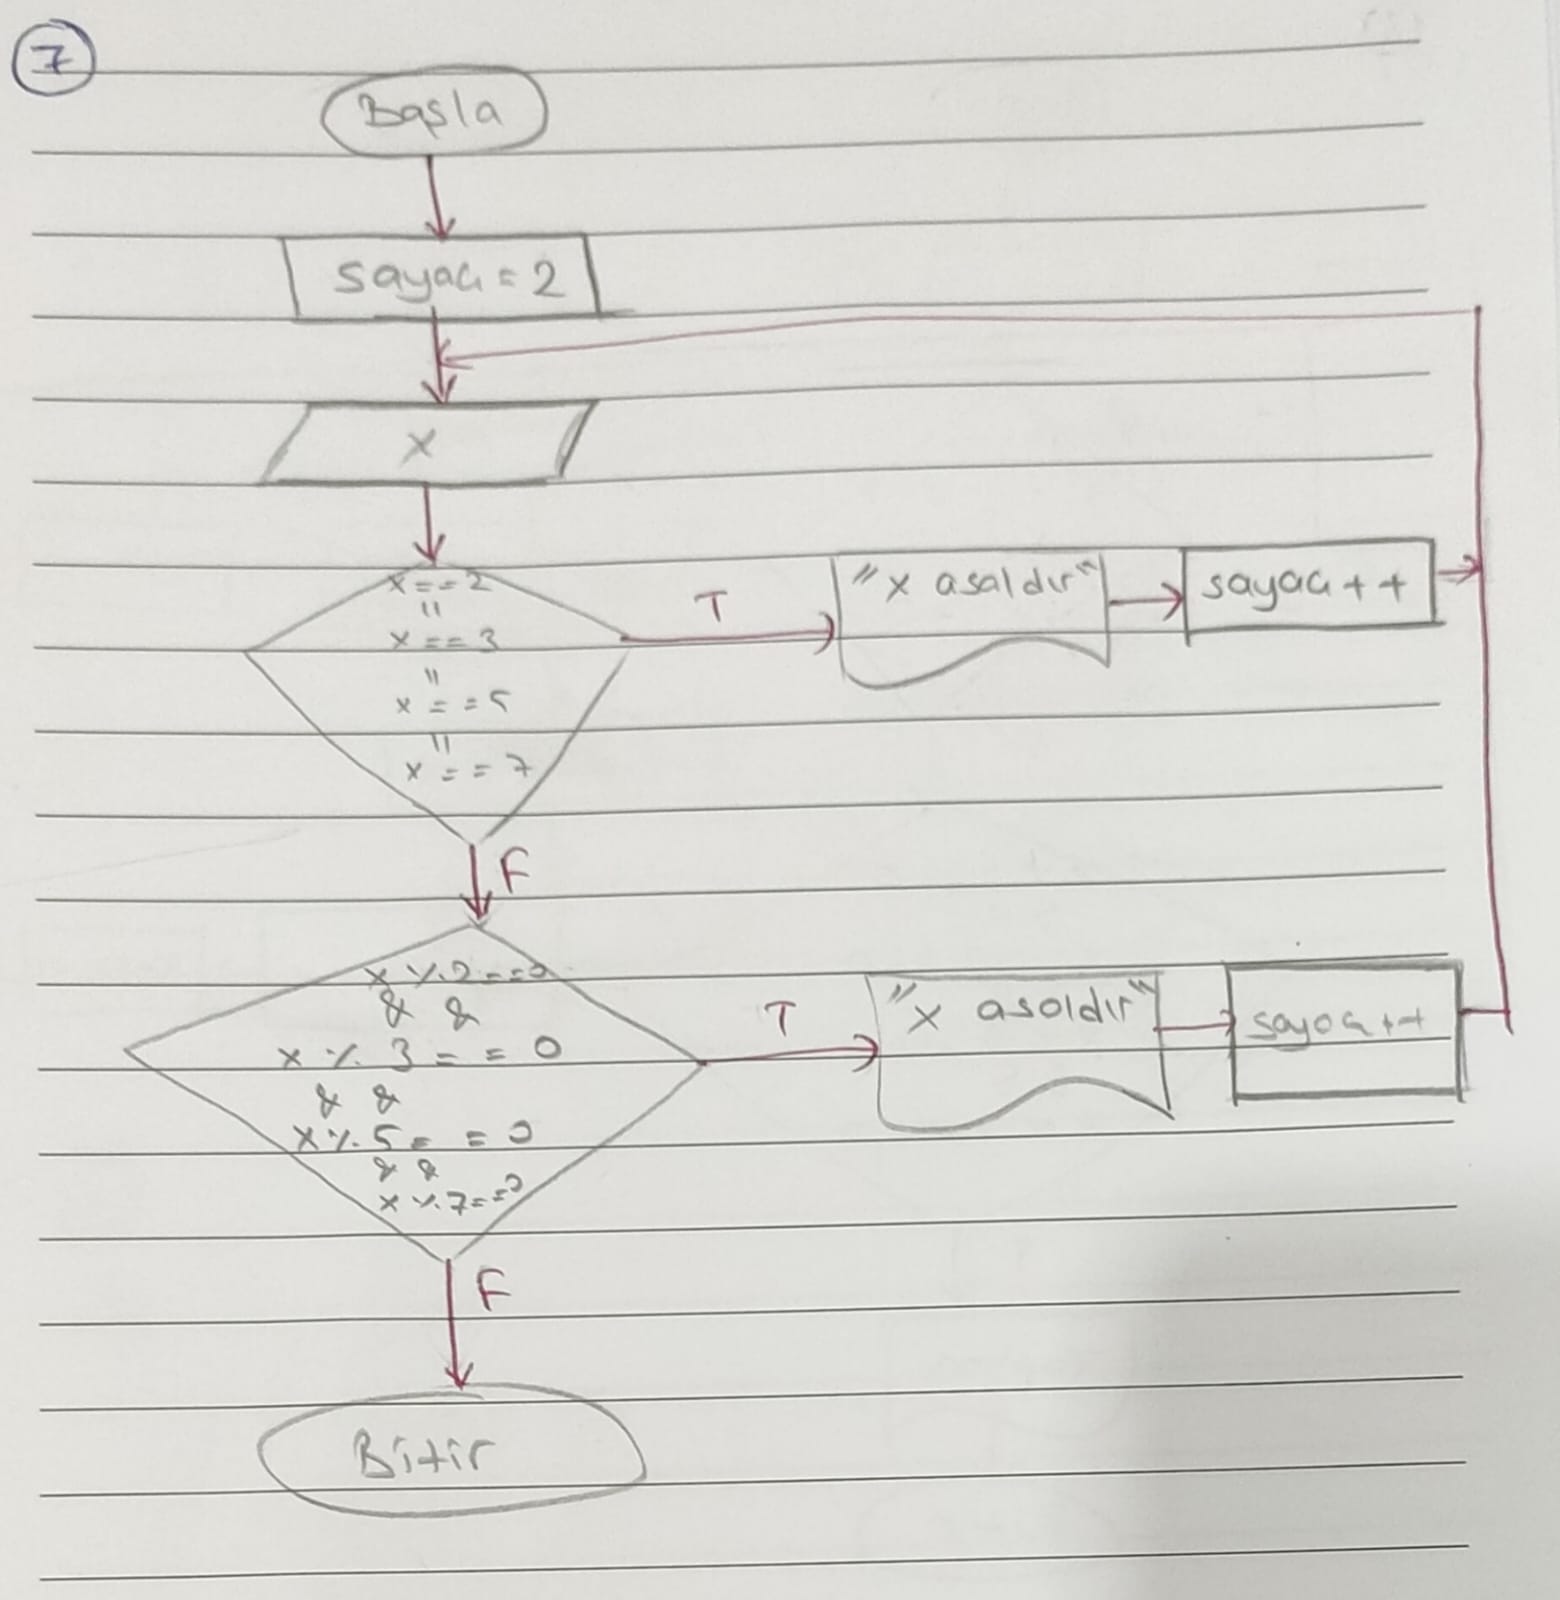 7
Başla
sayaç = 2
x
x == 2
||
x == 3
||
x == 5
||
x == 7
T
"x asaldır"
sayaç ++
F
x % 2 == 0
& &
x % 3 == 0
& &
x % 5 == 0
& &
x % 7 == 0
T
"x asaldır"
sayaç ++
F
Bitir